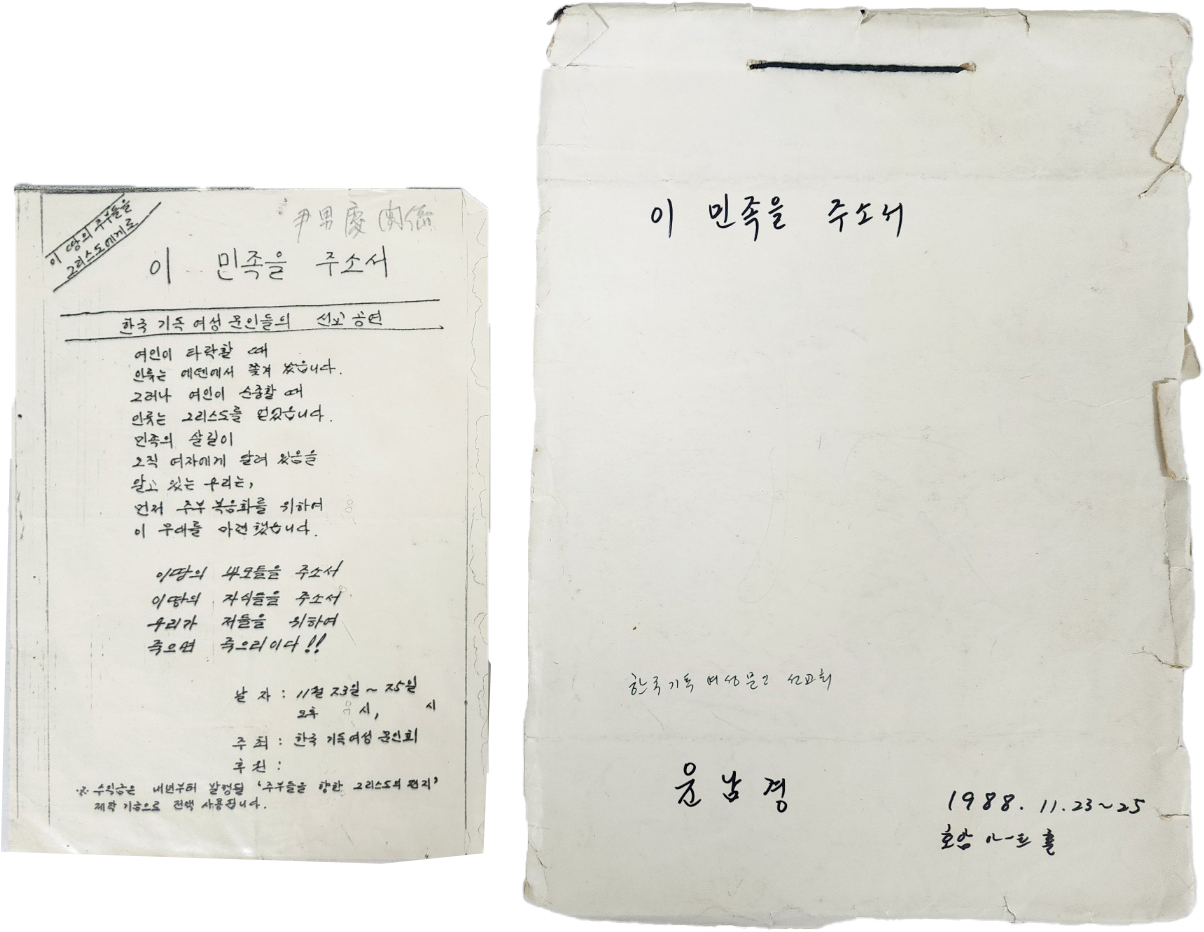 이 땅의 주부들을
그리스도에게로
尹男慶 関係
이 민족을 주소서
한국 기독 여성 문인들의 선교 공연
여인이 타락할 때
인류는 에덴에서 쫓겨 났습니다.
그러나 여인이 순종할 때
인류는 그리스도를 얻었습니다.
민족의 살길이
오직 여자에게 달려 있음을
알고 있는 우리는,
먼저 주부 복음화를 위하여
이 무대를 마련했습니다.
이땅의 부모들을 주소서
이땅의 자식들을 주소서
우리가 저들을 위하여
죽으면 죽으리이다!!
날 자 : 11월 23일 ~ 25일
오후 시, 시
주 최 : 한국 기독여성 문인회
후 원 :
※ 수익금은 내년부터 발행될 '주부들을 향한 그리스도의 편지'
제작 기금으로 전액 사용됩니다.
이 민족을 주소서
한국기독여성문인 선교회
윤남경
1988. 11. 23~25
호암 아-트 홀